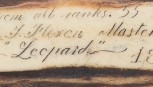 from all ranks. 55
J. Fleren Master
"Leopard" 18